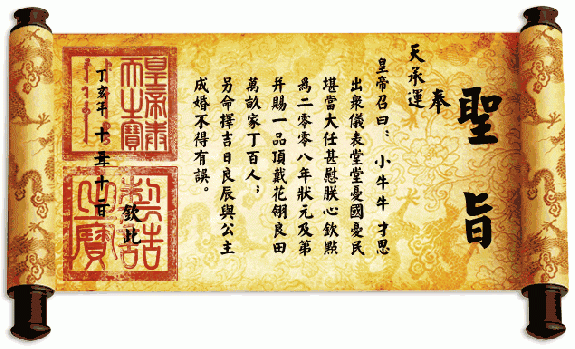 聖旨
奉
天承運
皇帝召曰：小牛牛才思
出衆儀表堂堂憂國憂民
堪當大任甚慰朕心欽點
為二零零八年狀元及第
并賜一品頂戴花翎良田
萬畝家丁百人；
另命擇吉日良辰與公主
成婚不得有誤。
欽此
丁亥年
皇帝奉天之寶
制誥之寶